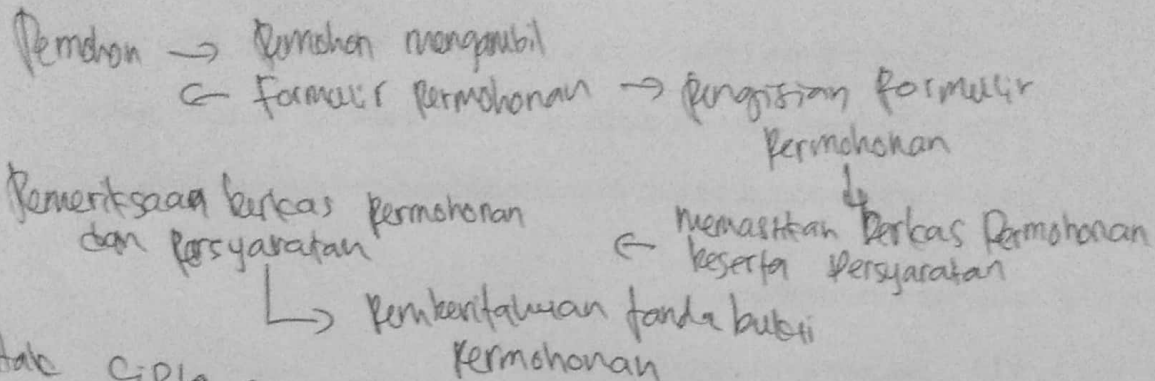 Pemohon → Pemohon mengambil
← Formulir Permohonan → Pengisian Formulir
Permohonan
↓
Pemeriksaan berkas permohonan
dan Persyaratan
← Memasukkan Berkas Permohonan
beserta Persyaratan
↳ Pemberitahuan tanda bukti
Permohonan
Cipta